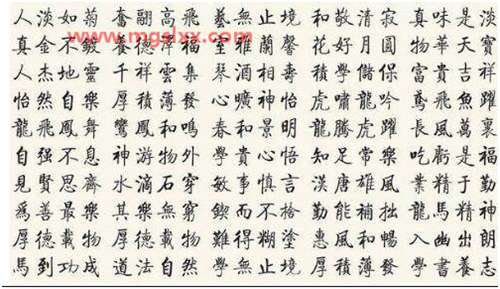 www.mgslxx.com
人淡如菊 奮翮高飛 藝無止境 和敬清寂 真味是淡
真金不鍍 養德福 室雅蘭馨 花好月圓 物華天寶
人杰地靈 千祥雲集 琴酒相壽 學儲保 富貴吉祥
怡然自樂 厚積薄發 心曠神怡 虎嘯龍吟 鳶飛魚躍
龍飛鳳舞 鸞鳳和鳴 春和景明 龍騰虎躍 長風萬裏
自强不息 神游物外 學貴心悟 知足常樂 吃虧是福
見賢思齊 水滴石穿 敏事慎言 漢唐雄風 業精于勤
爲善最樂 其樂無窮 鍥而不捨 勤能補拙 龍馬精神
厚德載物 厚德載物 難得糊塗 惠風和暢 入幽出朗
馬到功成 道法自然 學無止境 厚積薄發 學書養志